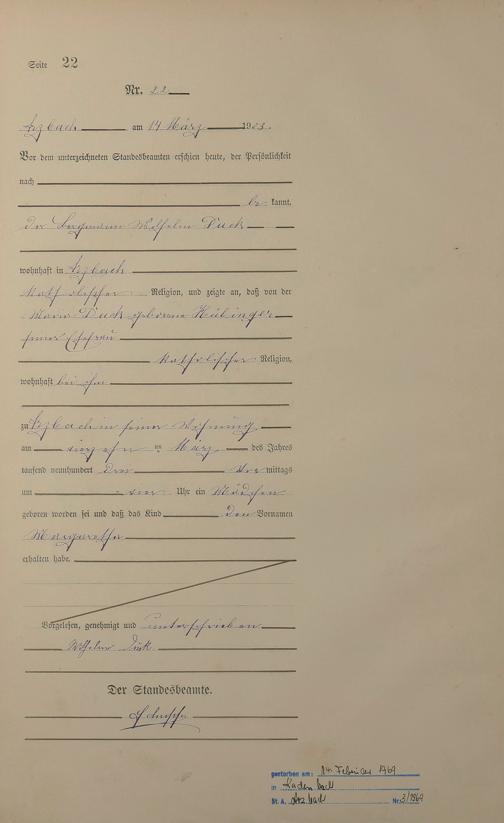 Seite 22
Nr. 22
Arzbach am 14 März 1903.
Vor dem unterzeichneten Standesbeamten erschien heute, der Persönlichkeit
nach
be kannt,
der Bergmann Wilhelm Duck
wohnhaft in Arzbach
katholischer Religion, und zeigte an, daß von der
Maria Duck geborene Hübinger
seiner Ehefrau
katholischer Religion,
wohnhaft bei ihm
zu Arzbach in seiner Wohnung
am vierzehn ten März des Jahres
tausend neunhundert drei Vor mittags
um Uhr ein Mädchen
geboren worden sei und daß das Kind den Vornamen
Margaretha
erhalten habe.
Vorgelesen, genehmigt und unterschrieben
Wilhelm Duck
Der Standesbeamte.
gestorben am: 14. Februar 1969
in Kadenbach
St. A. Arzbach Nr. 3/1969